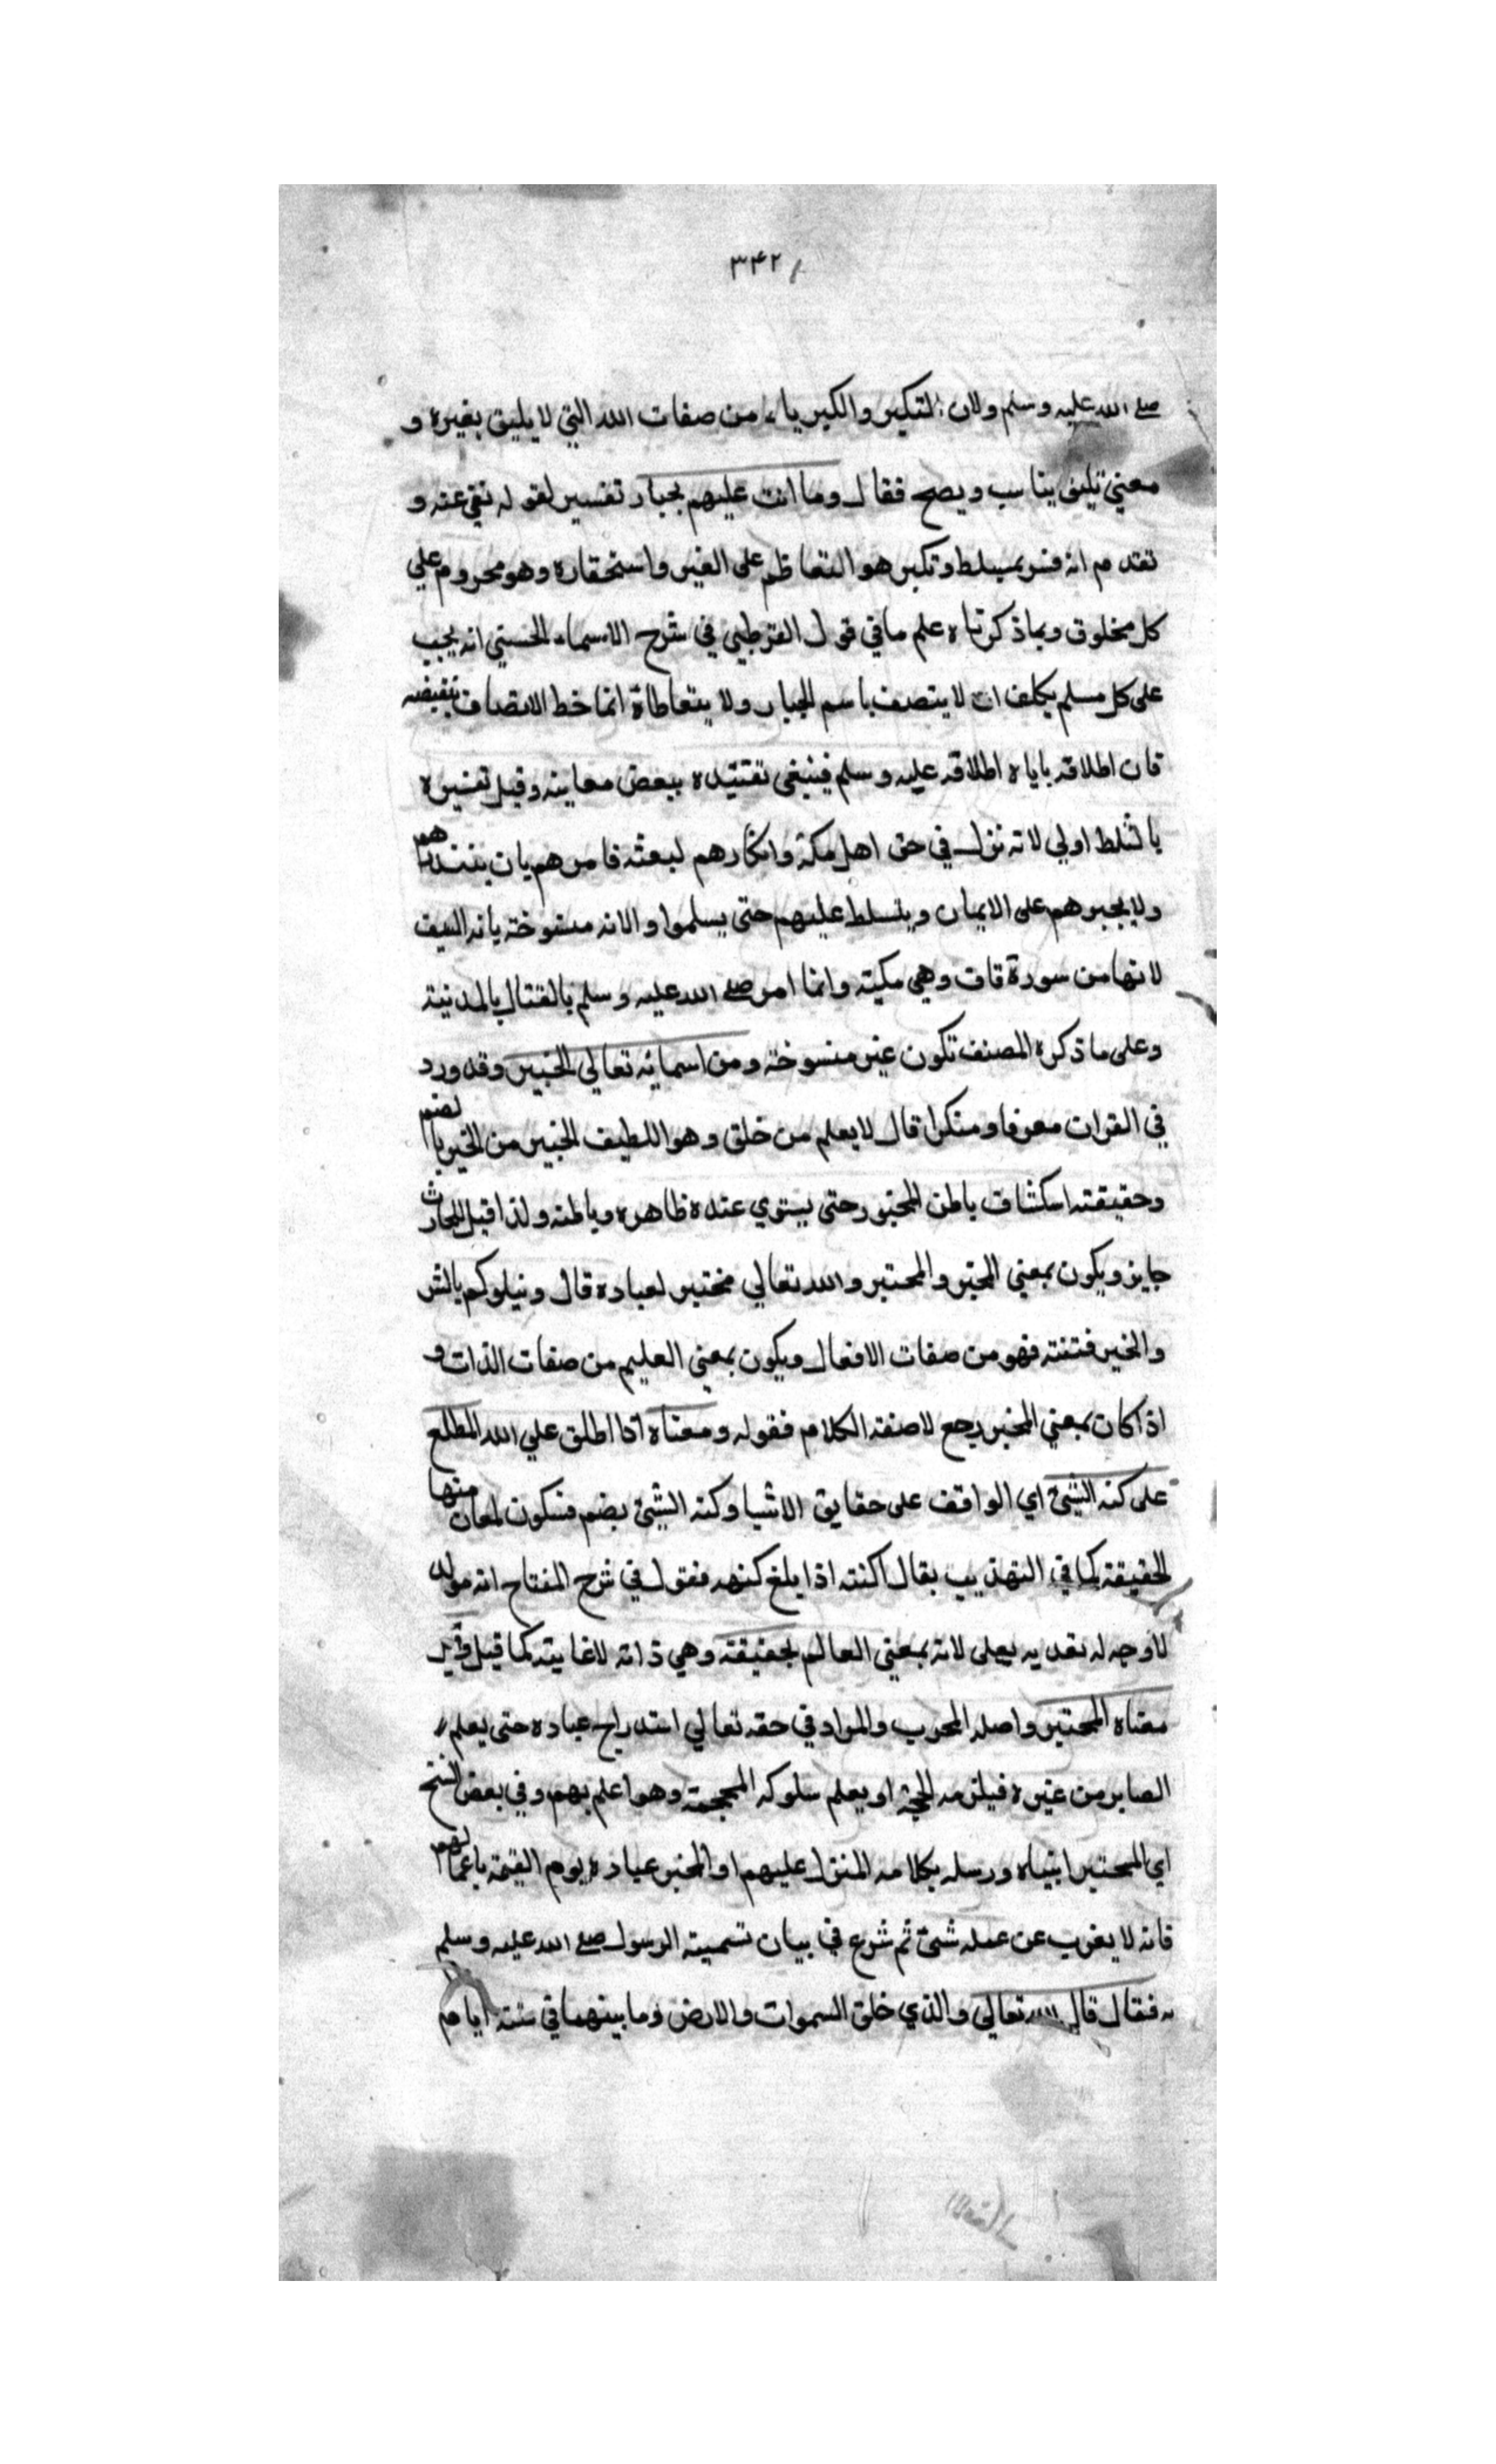 ٣٤٢
صلى الله عليه وسلم ولان التكبر والكبرياء من صفات الله التي لا يليق بغيره و
معني تليق يناسب ويصح فقال وما انت عليهم بجبار تفسير لقوله نفي عنه و
تقدم انه فسر بمسلط وتكبر هو التعاظم على الغير واستحقاره وهو محروم علي
كل مخلوق وبما ذكرناه علم ما في قول القرطبي في شرح الاسماء الحسني انه يجب
على كل مسلم يكلف ان لا يتصف باسم الجبار ولا يتعاطاه انما خط الاتصاف بنقيضه
فان اطلاقه باياه اطلاقه عليه وسلم فينبغي تقتيده ببعض معاينه وقيل تفسيره
بالتلط اولي لانه نزل في حق اهل مكة وانكارهم لبعثه فامرهم بان ينذرهم
ولا يجبرهم على الايمان ويتسلط عليهم حتى يسلموا والانه منسوخة بانه السيف
لانها من سورة قاف وهي مكيته وانما امر صلى الله عليه وسلم بالقتال بالمدنيته
وعلى ما ذكره المصنف تكون غير منسوخة ومن اسمائه تعالي الخبير وقد ورد
في القران معرفا ومنكرا قال لا يعلم من خلق وهو اللطيف الخبير من الخبر بالضم
وحقيقته اسكشاف باطن المخبور حتى يستوي عنده ظاهره وباطنه ولذا قيل للحارث
جايز ويكون بمعني المخبر والمختبر والله تعالي مختبر لعباده قال ونبلوكم بالشر
والخير فتنته فهو من صفات الافعال ويكون بمعني العليم من صفات الذات و
اذا كان بمعني المخبر رجع لا صفته الكلام فقوله ومعناه اذا اطلق علي الله المطلع
على كنه الشئ اي الواقف على حقايق الاشيا وكنه الشئ بضم فسكون لمعان منها
الحقيقة كما في التهذيب يقال اكنته اذا بلغ كنهه فقول في شرح المفتاح انه مولد
لا وجه له تعديه بعلى لانه بمعني العالم بحقيقته وهي ذاته لا غايته كما قيل وقيل
معناه المختبر واصله المجرب والمراد في حقه تعالي استدراج عباده حتى يعلم
الصابر من غيره فيلزمه الحجة او يعلم سلوكه المحجة وهو اعلم بهم وفي بعض النسخ
اي المختبر انبياه ورسله بكلامه المنزل عليهم او المخبر عباده يوم القيمة باعمالهم
فانه لا يغرب عن عمله شئ ثم شرع في بيان تسميته الرسول صلى الله عليه وسلم
به فقال قال الله تعالي والذي خلق السموات والارض وما بينهما في ستة ايام